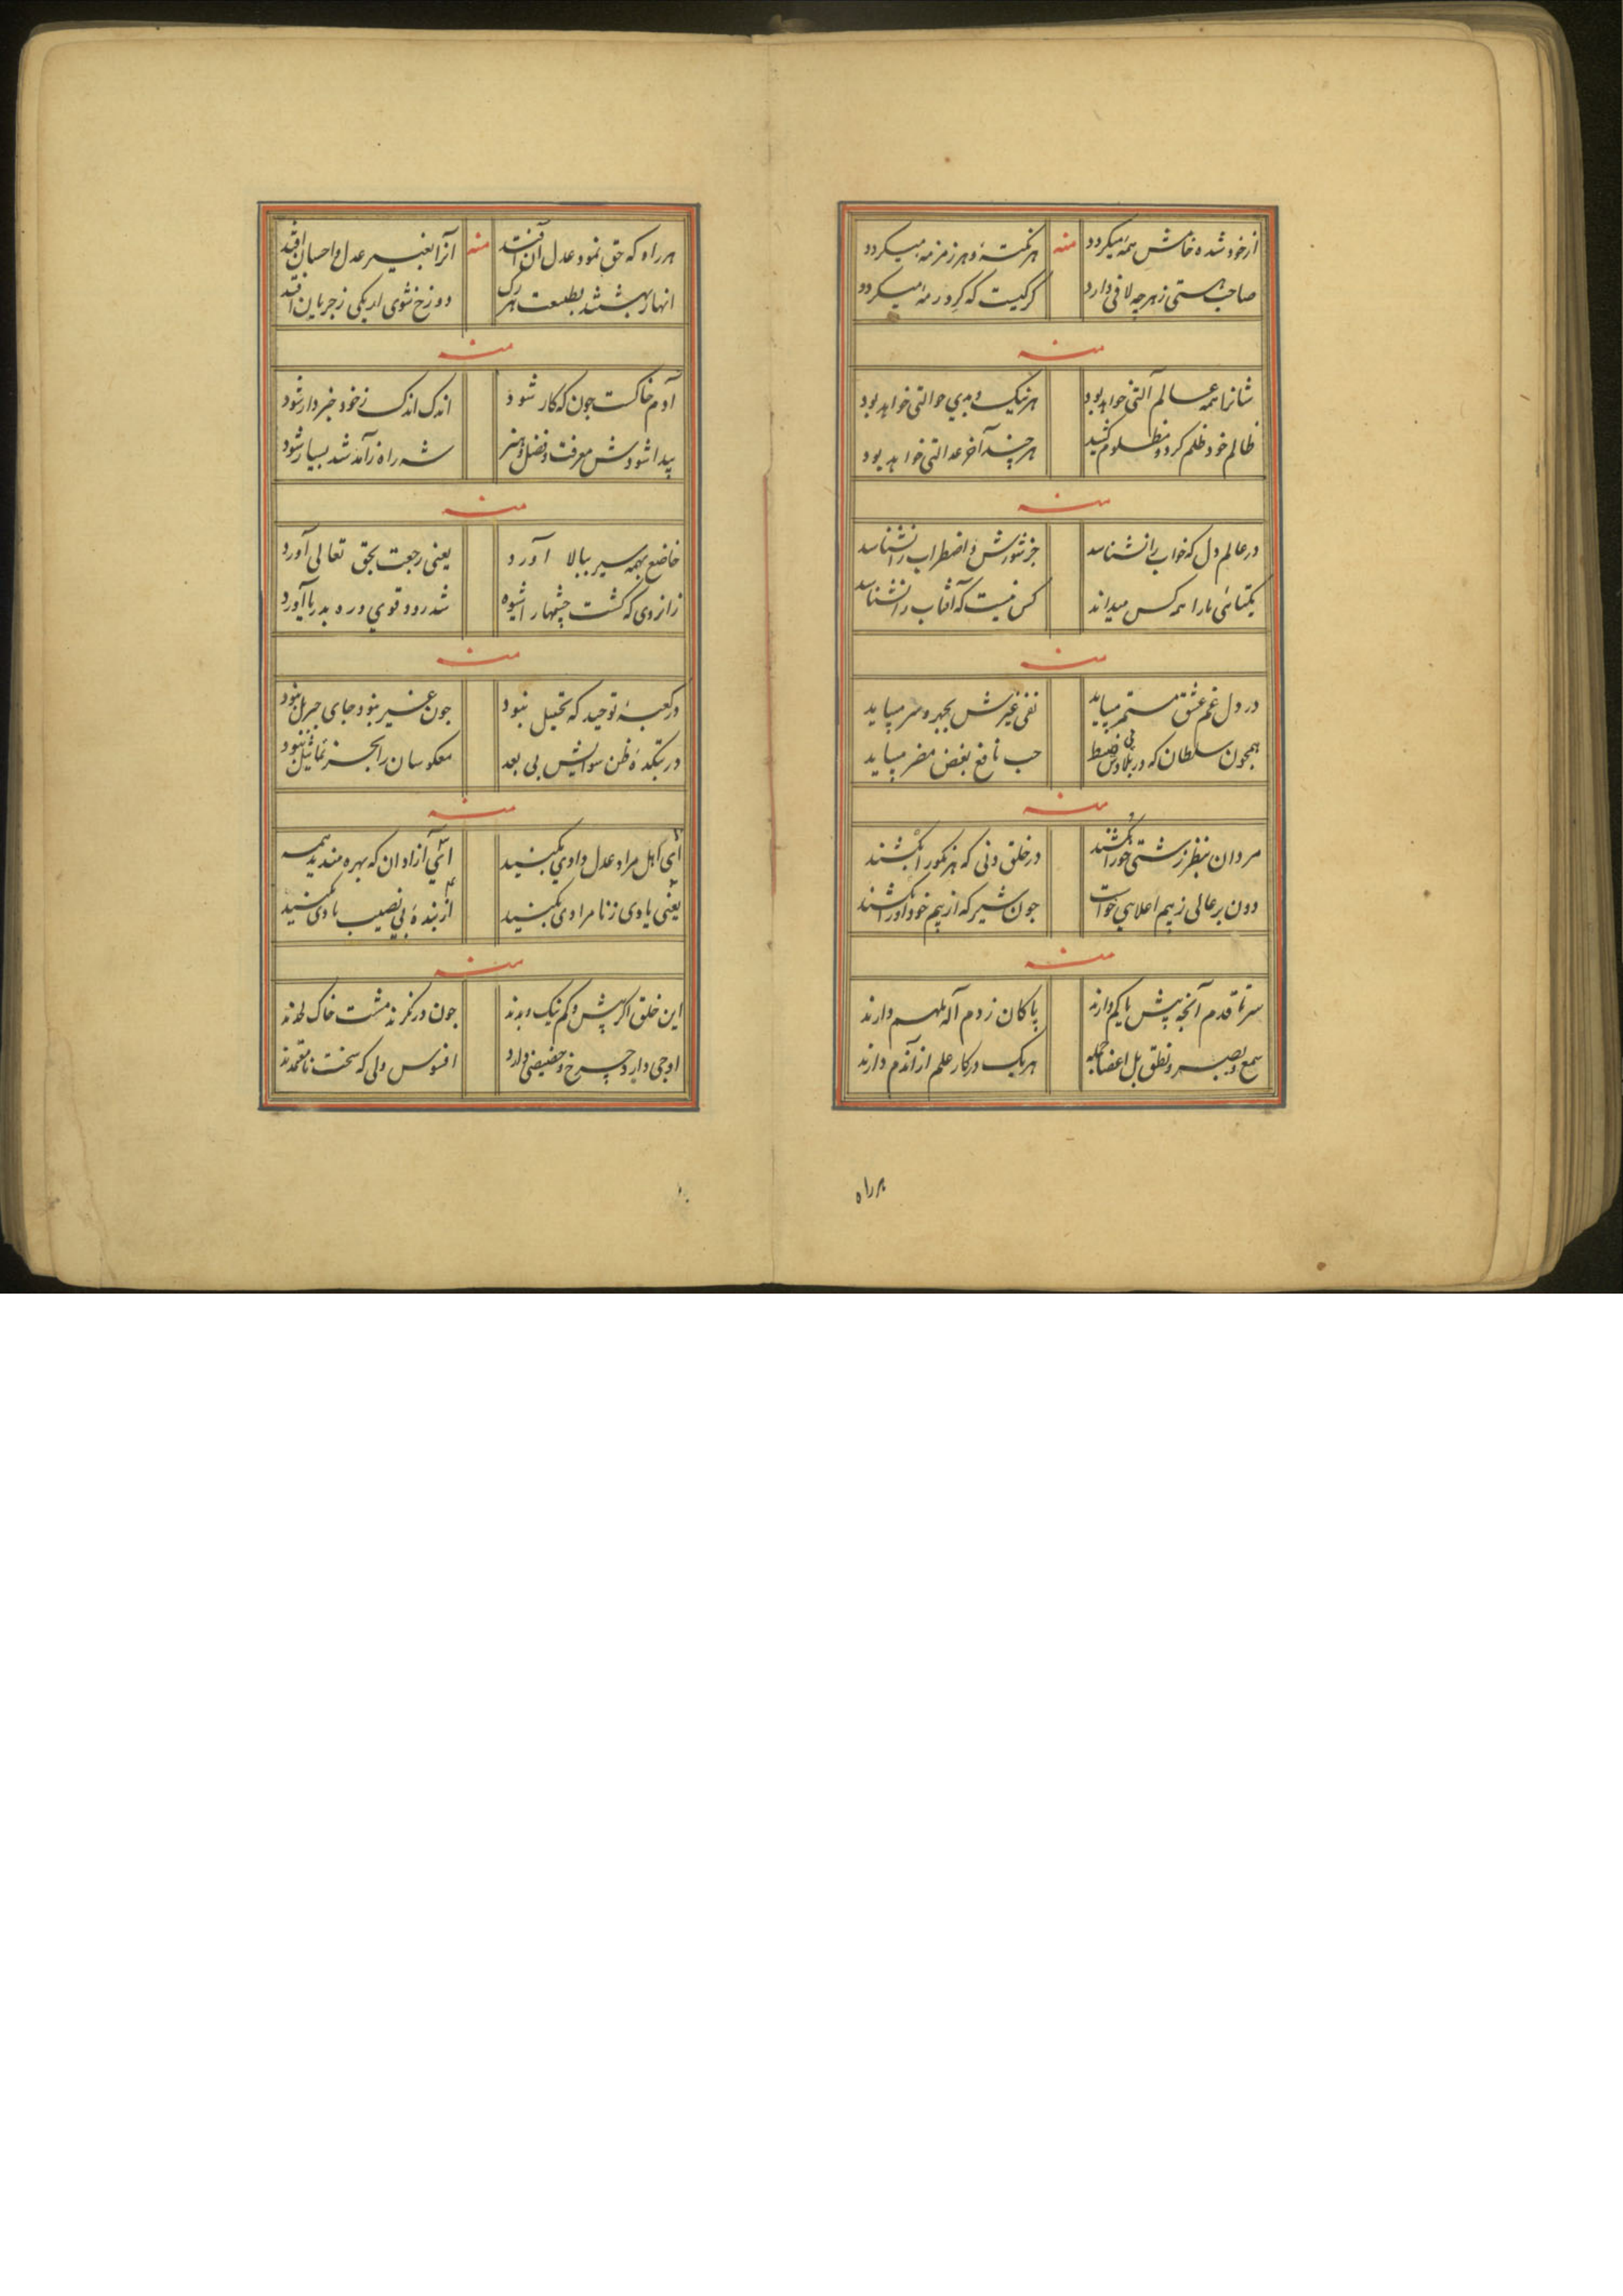 از خود شده خامش همه میکردد
منه
هر نکتهٔ و هر زمزمه میکردد
صاحب هستی زهرچه لافی دارد
کرکیست که کرد رمه میکردد
منه
شانرا همه عالم آلتی خواهد بود
هر نیک و بدی حوالتی خواهد بود
ظالم خود ظلم کرد و مظلوم کشید
هرچند آخر عدالتی خواهد بود
منه
در عالم دل که خواب را نشناسد
جز شورش و اضطراب را نشناسد
یکتائی ما را همه کس میداند
کس نیست که آفتاب را نشناسد
منه
در دل غم عشق مستمر میباید
نفی غیرش بجهر و سر میباید
همچون سلطان که در بلاد پی ضبط
حب نافع بغض مضر میباید
منه
مردان بنظر زشتی خو را نکشند
در خلق دنی که هر نکو را نکشند
دون بر عالی زبیم اعلاهی خواست
چون شیر که از بیم خود او را نکشند
منه
سر تا قدم آنچه بیش یا کم دارند
پاکان ز دم آله ملهم دارند
سمع و بصر و نطق بل اعضا جمله
هریک در کار علم از آندم دارند
هر راه
هر راه که حق نمود عدل آن افتد
منه
آنرا بغیر عدل و احسان افتد
انهار بهشتند بطبعت هر رک
دوزخ شوی ار یکی ز جریان افتد
منه
آدم خاکست چون که کار شود
اندک اندک ز خود خبردار شود
پیدا شودش معرفت و فضل و هنر
شه راه ز آمد شد بسیار شود
منه
خاضع بهمه سیر ببالا آورد
یعنی رجعت بحق تعالی آورد
زانروی که کشت چشمها را شیوه
شد رود قوی و ره بدریا آورد
منه
در کعبهٔ توحید که تخییل نبود
چون غیر نبود جای جبریل نبود
در بتکدهٔ ظن سوایش بی بعد
معکوسان را بجز تماثیل نبود
منه
ای اهل مراد عدل و دادی بکنید
ای آزادان که بهره مندید همه
یعنی یادی ز نامرادی بکنید
از بندهٔ بی نصیب یادی بکنید
منه
این خلق اکر بیش و کم نیک و بدند
چون درنکرند مشت خاک لحدند
اوجی دارد چرخ و حضیضی دارد
افسوس ولی که سخت نامعتمدند